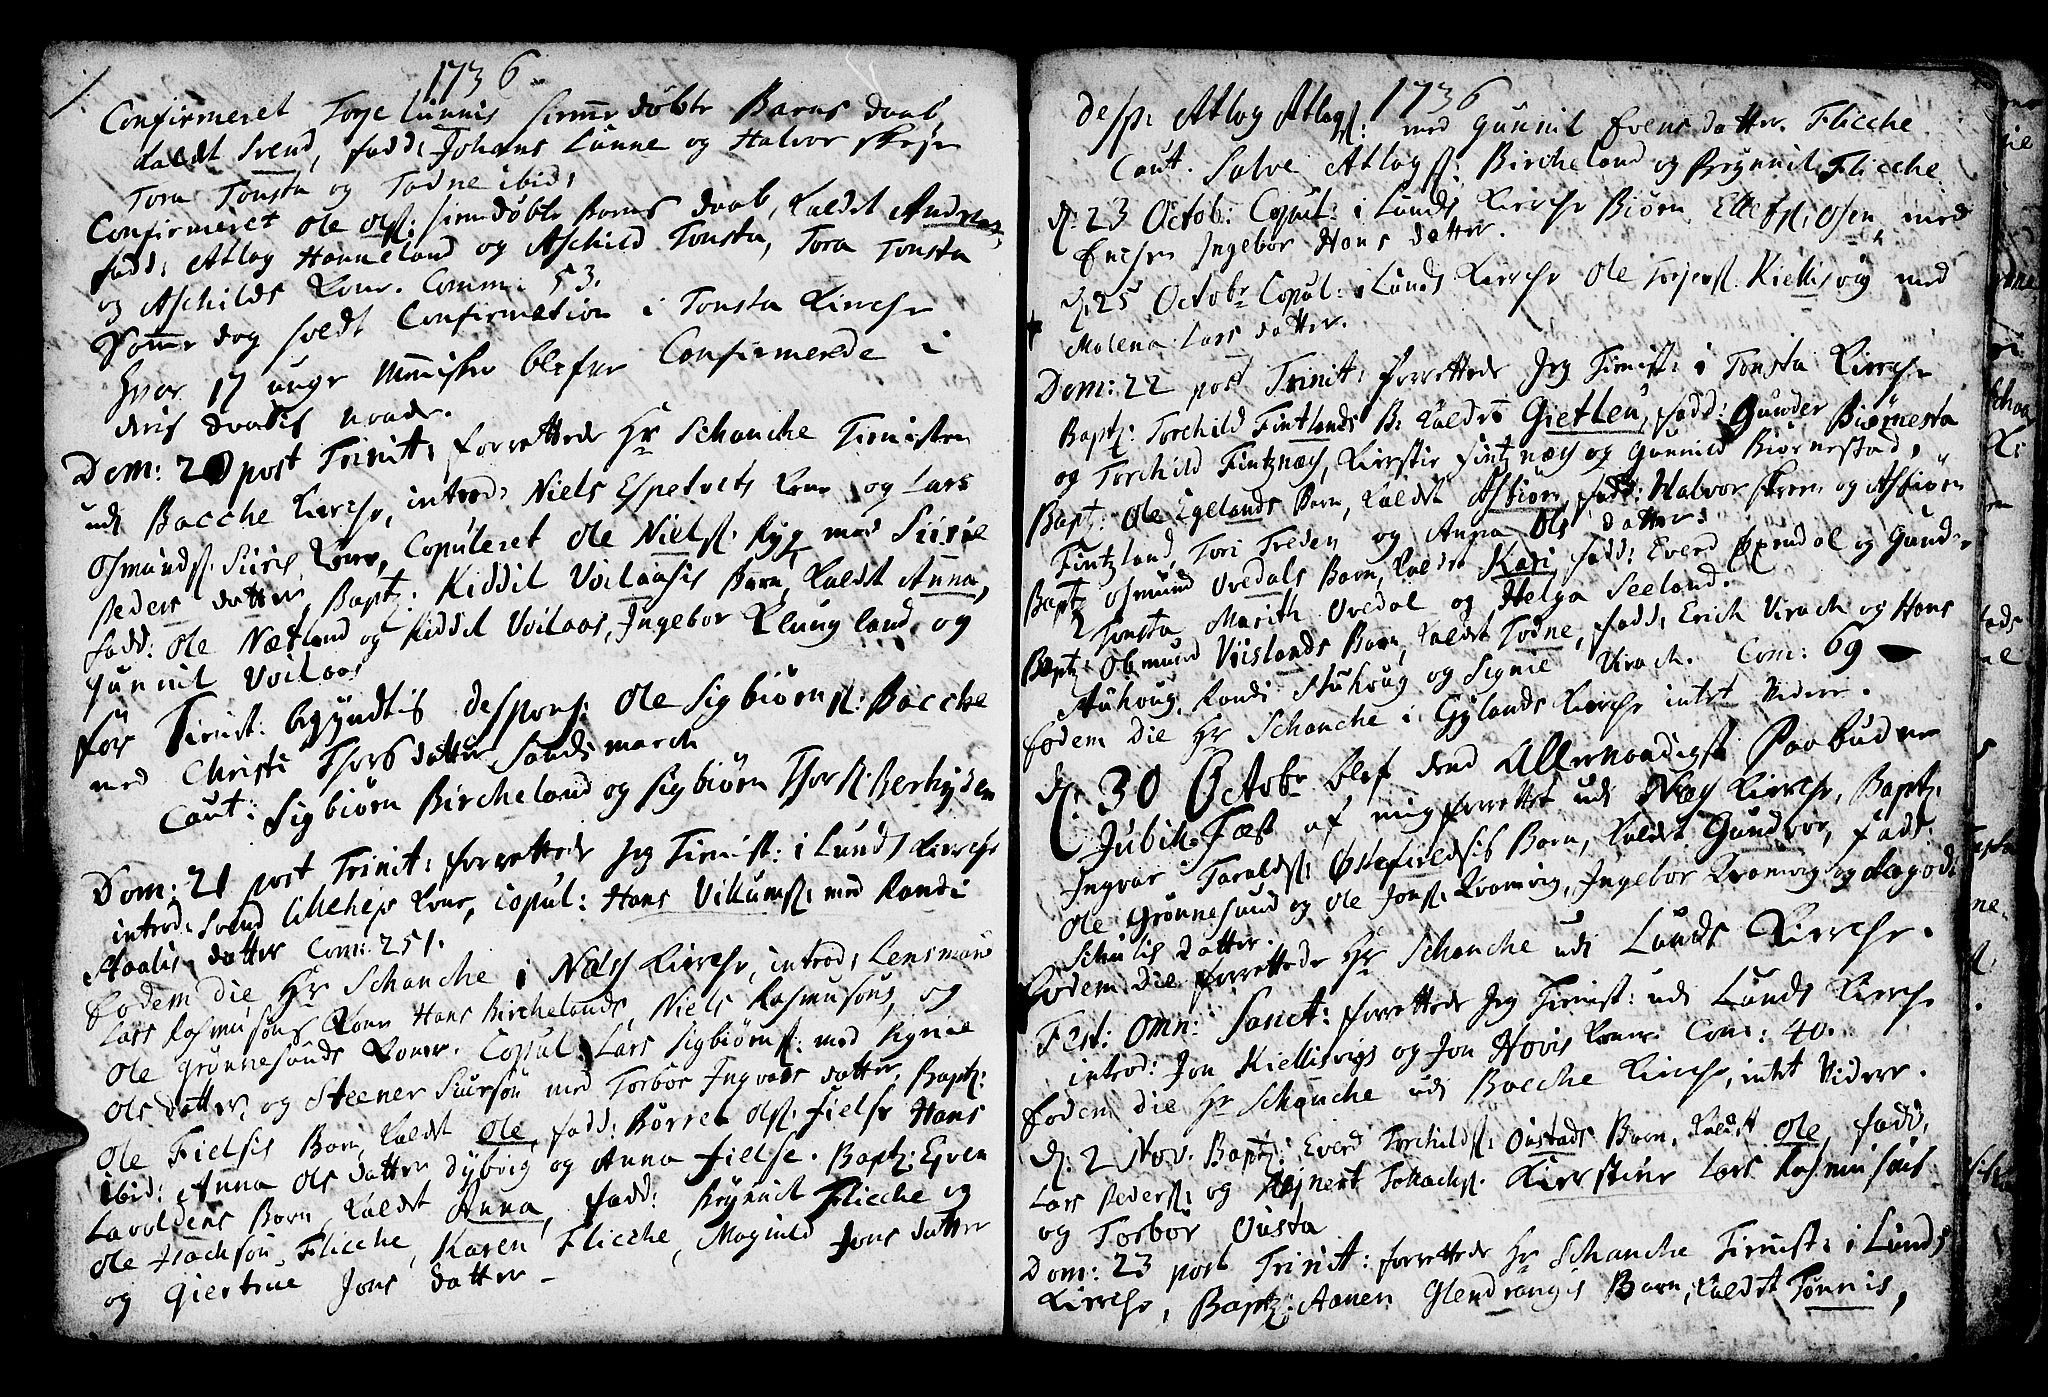 1736
Confirmeret Torje Lunnis hiemme døbte Barns daab
kaldt Svend, fadd: Johans Lunne og Halvor
Tora Tonsta og Todne ibid:
Confirmeret Ole Ols: hiemdøbte Barns daab, kaldet Andreas,
fadd: Atlag Hanneland og Aschild Tonsta, Tora Tonsta
og Aschilds Kone. Comm: 53.
Samme dag holdt Confirmation i Tonsta Kirche
hvor 17 unge Mennisker blefve Confirmerede i
deris daabis naade.
Dom: 20 post Trinit: forrettede Hr Schanche Tienisten
udi Bacche Kirche, introd: Niels Espetvets Kone og Lars
Osmunds: Siiris Kone, Copuleret Ole Niels: Ryg med Siirie
Peders datter, Bapt: Kiddil Voilaasis Barn, kaldet Anna,
fadd: Ole Nætland og Kiddil Voilaas, Ingebor Klungland og
Gunnil Voilaas
før Tienist: begyndtis despons: Ole Sigbiørns: Bacche
med Christi Thors datter Sandsmarch
Caut: Sigbiørn Bircheland og Sigbiørn Thors:
Dom: 21 post Trinit: forrettede Jeg Tienist: i Lunds Kirche
introd: Svend Kone, Copul: Hans Villums: med Randi
Staalis datter Com: 251.
Eodem die Hr Schanche i Næs Kirche, introd: Lensmand
Lars Rasmusøns Kone Hans Birchelands, Niels Rasmusøns, og
Ole Grønnesunds Koner. Copul: Lars Sigbiørns: med Signie
Ols datter, og Steener Siursøn med Torbor Ingvals datter, Bapt:
Ole Fielsis Barn kaldet Ole, fadd: Børrel Ols: Fielse Hans
ibid: Anna Ols datter Dybvig og Anna Fielse. Bapt: Even
Lavoldens Barn, kaldet Anna, fadd: Brynnil Flicche og
Ole Isachsøn Flicche, Karen Flicche, Magnild Jons datter
og Giertrue Jons datter
1736
desp: Atlag Atlags: med Gunnil Evens datter. Flicche
Caut. Salve Atlags: Bircheland og Brynnil Flicche.
d: 23 Octob: Copul: i Lunds Kirche Biørn Ellefs: Osen med
Enchen Ingebor Hans datter.
d: 25 Octobr Copul: i Lunds Kirche Ole Torjers: Kiellisvig med
Malena Lars datter.
Dom: 22 post Trinit: forrettede Jeg Tienist: i Tonsta Kirche
Bapt: Torchild Fintlands B: kaldet Gietleu, fadd: Gunder Biørnesta
og Torchild Fintznæs, Kierstie Fintznæs og Gunnild Biørnestad,
Bapt: Ole Egelands Barn, kaldet Asbiørn, fadd: Halvor og Asbiørn
Fintzland, Tori Treden og Anna Ols datter.
Bapt: Osmund Ovedals Barn, kaldet Kari, fadd: Everd og Gunder
Tonsta, Marith Ovedal og Helga Seeland.
Bapt: Obmund Viislands Barn, kaldet Todne, fadd: Erich Virach og Hans
Stuhoug, Randi Stuhoug og Signie Virach. Com: 69
Eodem Die Hr Schanche i Gylands Kirche intet Videre.
d: 30 Octobr blef dend Allernaadigst Paabudne
Jubile Fæst af mig forrettet udi Næs Kirche, Bapt:
Ingvar Taralds: Barn, kaldet Gundvor, fadd:
Ole Grønnesund og Ole Jons: Kvamvig, Ingebor Kvamvig og
datter.
Eodem Die forrettede Hr Schanche udi Lunds Kirche.
Fest: Omn: Sanct: forrettede Jeg Tienist: udi Lunds Kirche
introd: Jon Kiellisvigs og Jon Hovis Koner. Com: 40.
Eodem die Hr Schanche udi Bacche Kirche, intet Videre.
d: 2 Nov. Bapt: Everd Torchilds: Oustads Barn, kaldet Ole, fadd:
Lars Peders: og Reinert Tollachs: Kierstine Lars Rasmusøns
og Torbor Ousta
Dom: 23 post Trinit: forrettede Hr Schanche Tienist: i Lunds
Kirche, Bapt: Aanen Glendrangis Barn, kaldet Tønnis,